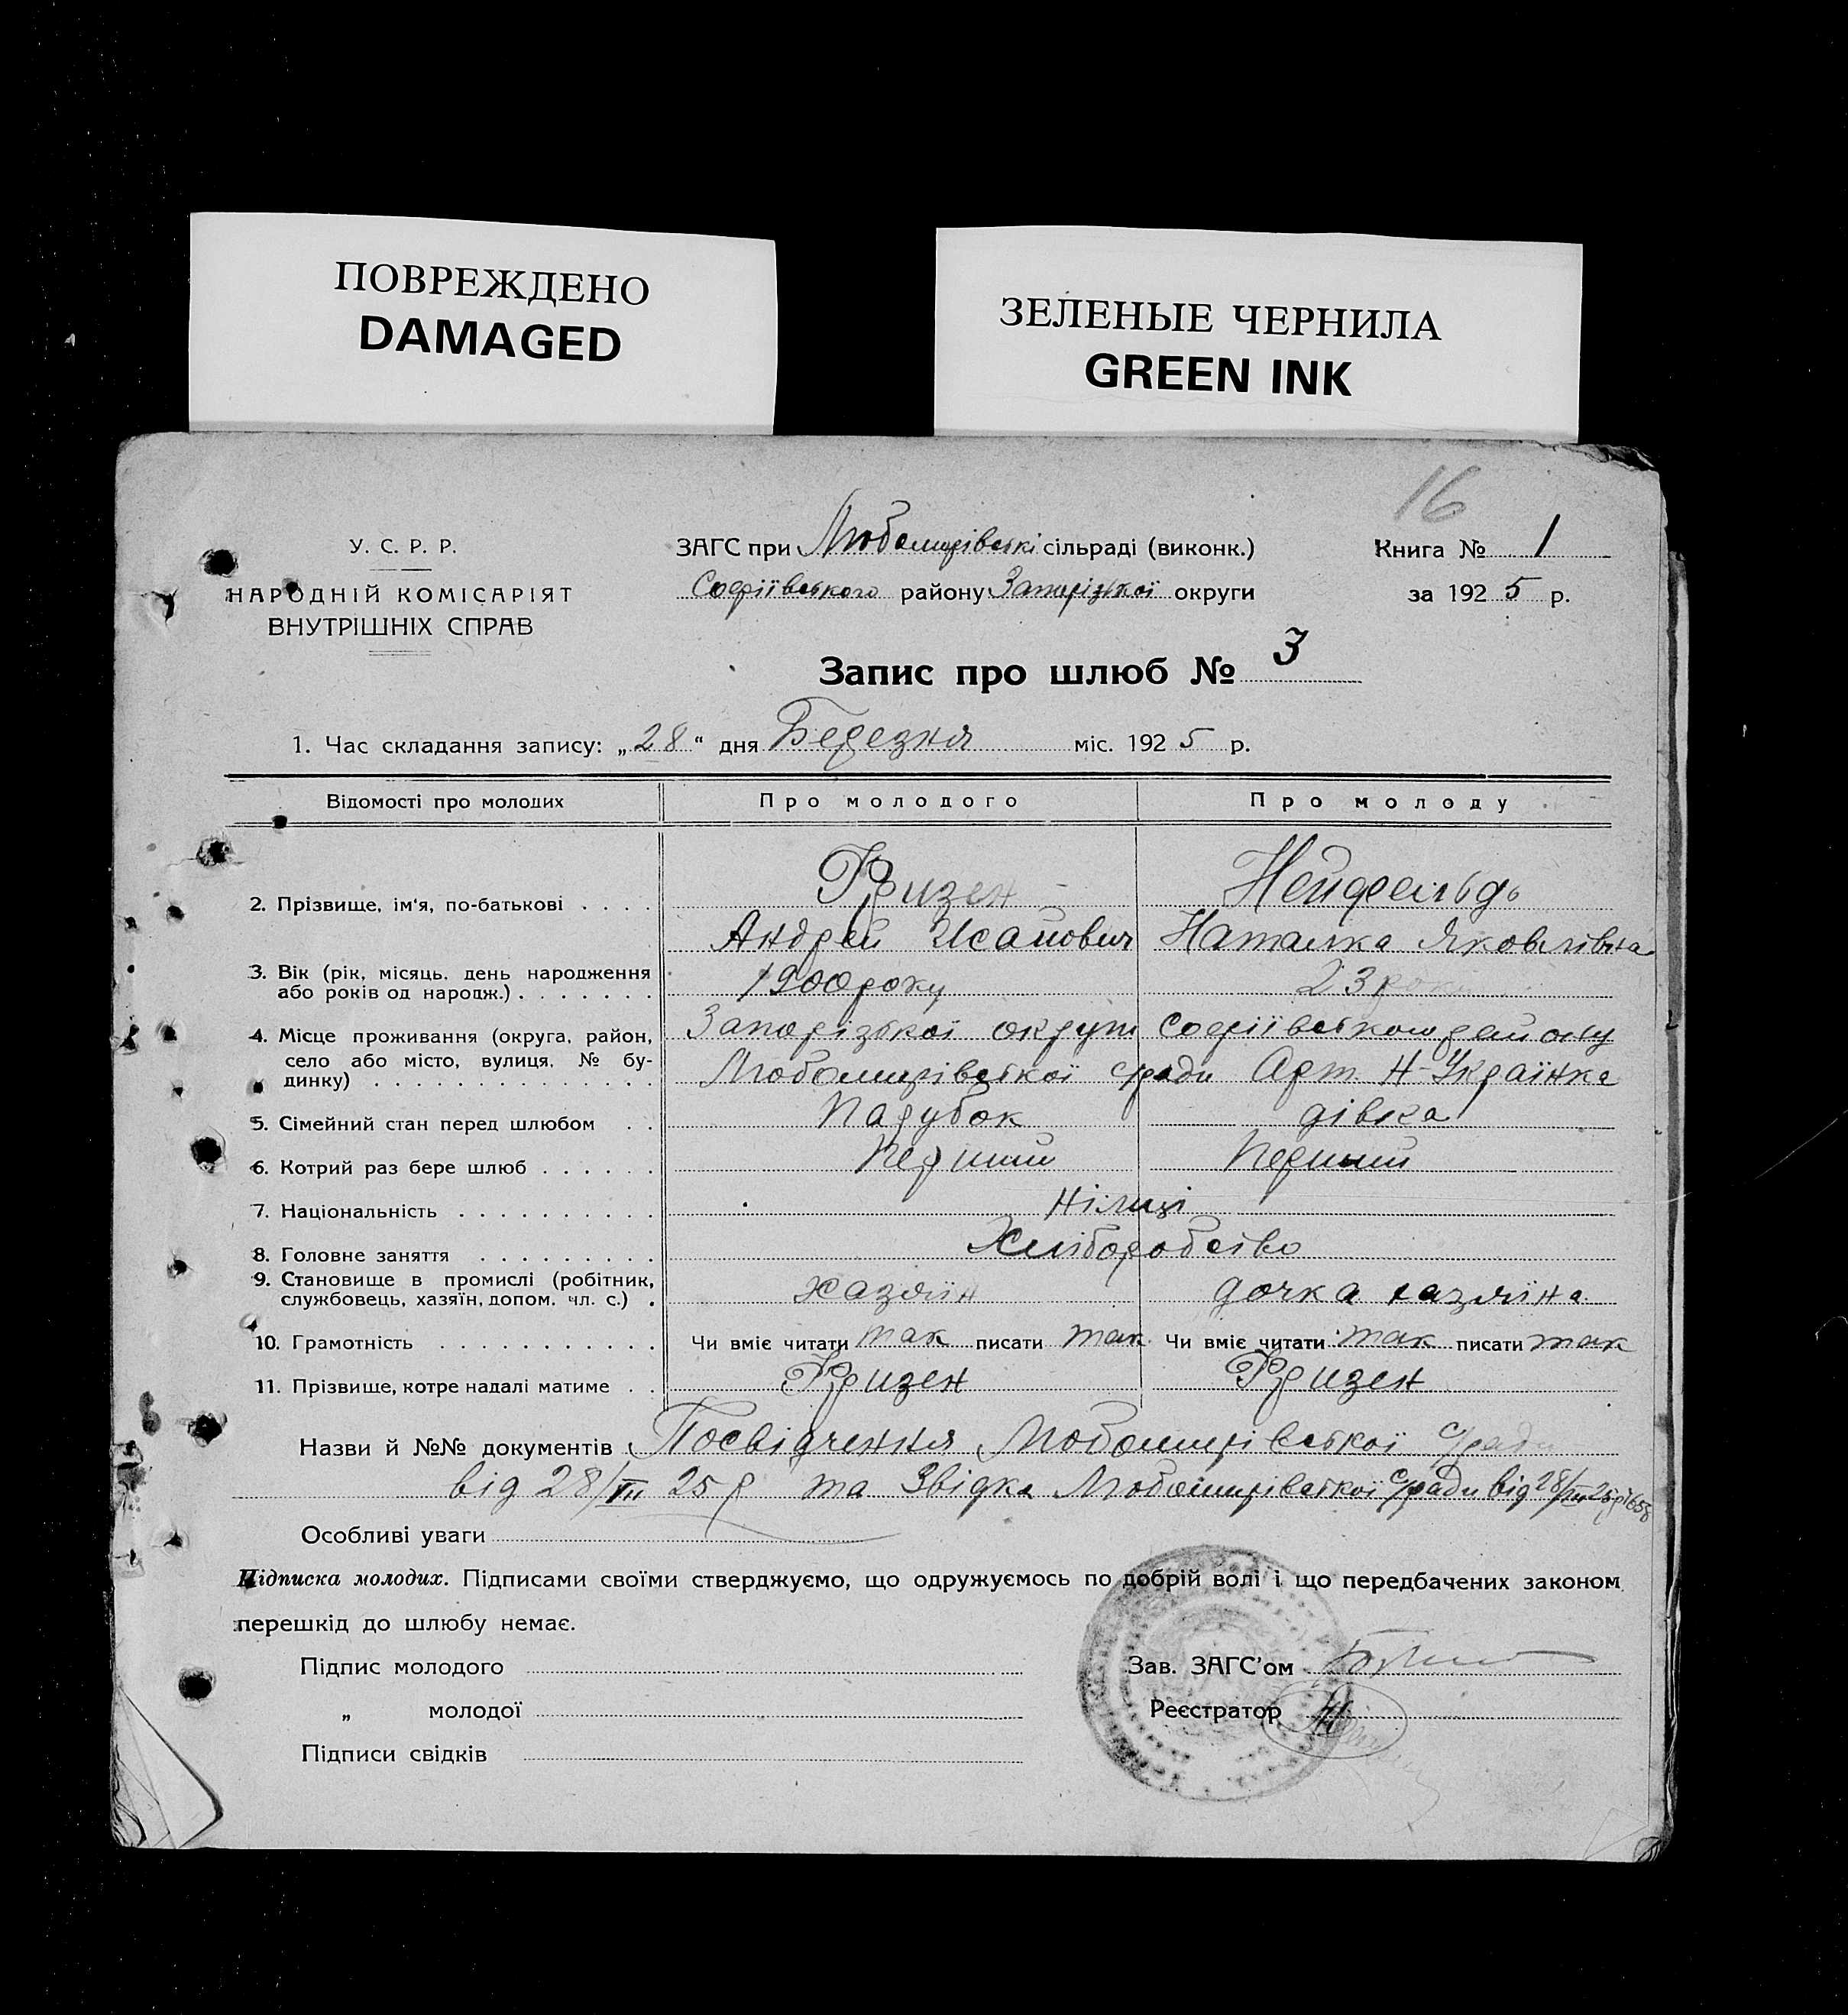 ПОВРЕЖДЕНО
DAMAGED
ЗЕЛЕНЫЕ ЧЕРНИЛА
GREEN INK
16
У. С. Р. Р.
НАРОДНІЙ КОМІСАРІЯТ
ВНУТРІШНІХ СПРАВ
ЗАГС при Любомирівські сільраді (виконк.)
Софіївського району Запорізької округи
Книга № 1
за 1925 р.
Запис про шлюб № 3
1. Час складання запису: „28“ дня Березня міс. 1925 р.
Відомості про молодих Про молодого Про молоду
Фризен Нейфельдь
2. Прізвище, ім'я, по-батькові . . . .
Андрей Исакович Наталка Яковлівна
3. Вік (рік, місяць, день народження або років од народж.) . . . . . . . 1900 року 23 роки
4. Місце проживання (округа, район, село або місто, вулиця, № будинку) . . . . . . . . . . . . . .
Запорізької округи Софіївського району
Любомирівської с/ради Арт. Н-Українка
5. Сімейний стан перед шлюбом . . Парубок дівка
6. Котрий раз бере шлюб . . . . . . Перший Перший
7. Національність . . . . . . . . . . німці
8. Головне заняття . . . . . . . . . Хліборобство
9. Становище в промислі (робітник, службовець, хазяїн, допом. чл. с.) . хазяїн дочка хазяїна
10. Грамотність . . . . . . . . . . . Чи вміє читати так писати так Чи вміє читати так писати так
11. Прізвище, котре надалі матиме . . Фризен Фризен
Назви й №№ документів Посвідчення Любомирівської с/ради
від 28/III 25 р та Звідка Любомирівської с/ради від 28/III 25р
Особливі уваги
Підписка молодих. Підписами своїми стверджуємо, що одружуємось по добрій волі і що передбачених законом
перешкід до шлюбу немає.
Підпис молодого
„ молодої
Підписи свідків
Зав. ЗАГС'ом
Реєстратор